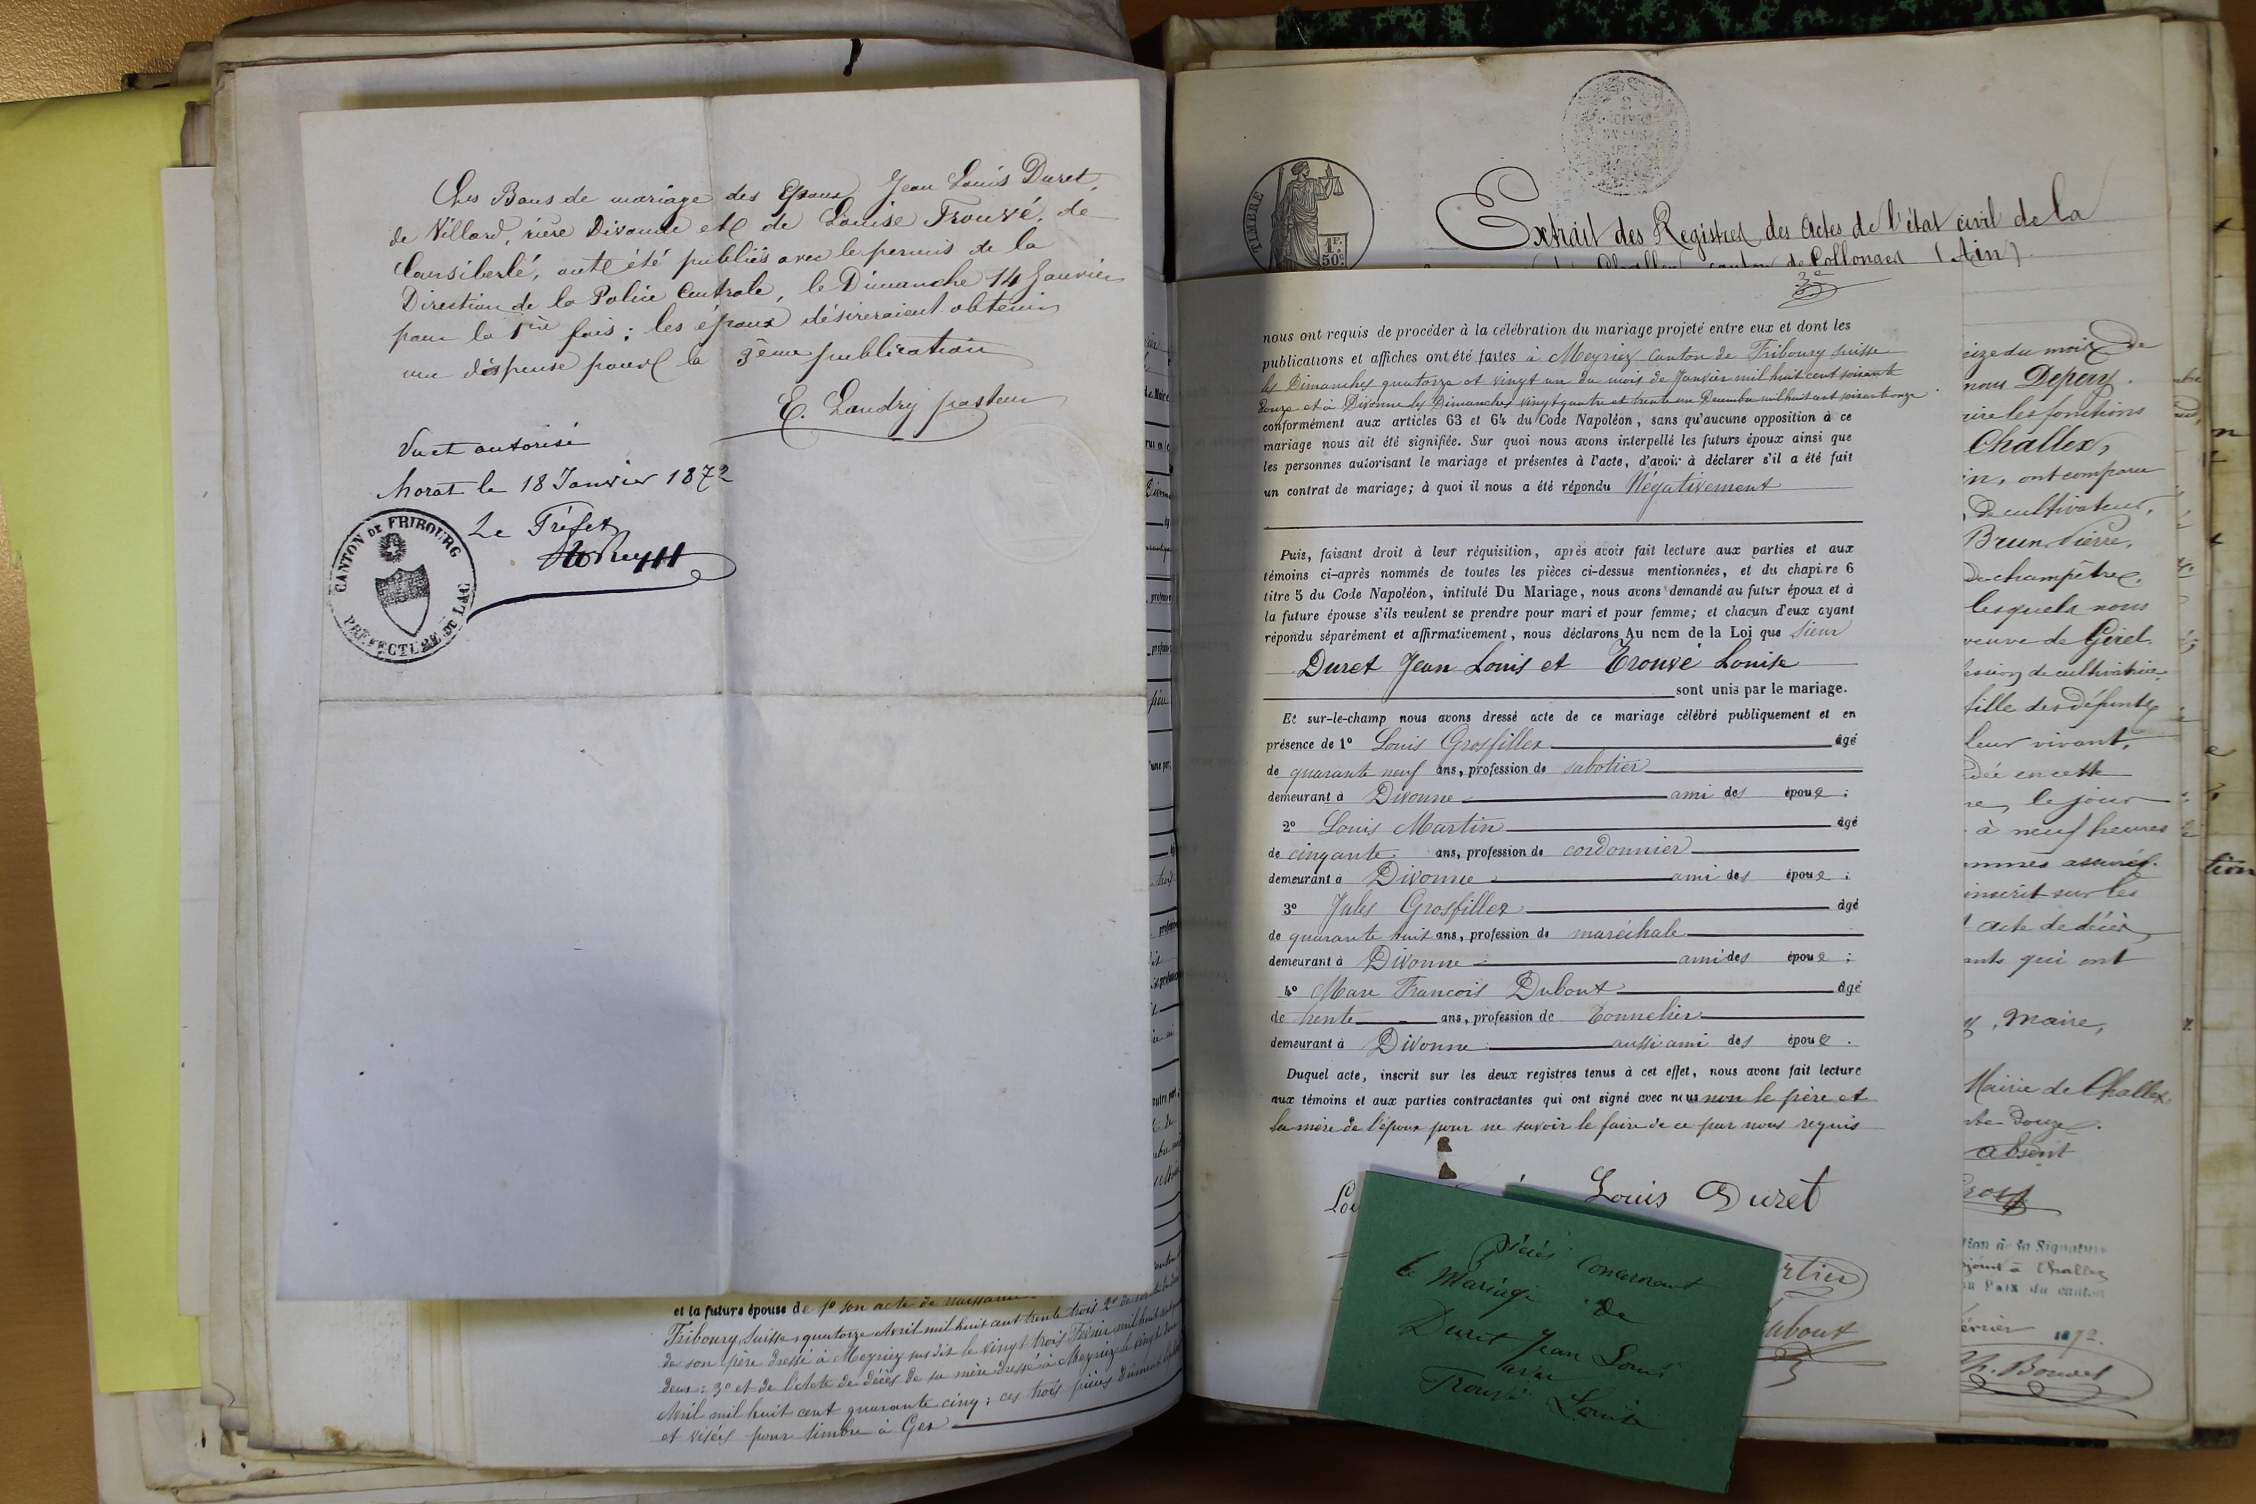 Les Bans de mariage des Epoux Jean Louis Duret,
de Villard, rière Divonne et de Louise Trouvé, de
ont été publiés avec le permis de la
Direction de la Police Centrale, le Dimanche 14 Janvier
pour la 1ère fois; les époux désireraient obtenir
une dispense pour la 3ème publication
E. Landry pasteur
Vu et autorisé
Morat le 18 Janvier 1872
Le Préfet
CANTON DE FRIBOURG
PRÉFECTURE DU LAC
et la future épouse de 1o son acte de naissance
Fribourg Suisse, quatorze Avril mil huit cent trente trois 2o de
de son père dressé à Meyriez sus dit le vingt trois Février mil huit cent
deux: 3o et de l'Acte de décès de sa mère dressé à Meyriez le vingt
Avril mil huit cent quarante cinq; ces trois pièces dûment
et visées pour timbre à Gex
TIMBRE
1F.
50c
Extrait des Registres des Actes de l'état civil de la
Challex, canton de Collonges (Ain)
nous ont requis de procéder à la célébration du mariage projeté entre eux et dont les
publications et affiches ont été faites à Meyriez Canton de Fribourg Suisse
les Dimanches quatorze et vingt un du mois de Janvier mil huit cent soixante
douze et à Divonne les Dimanches vingt quatre et trente un Décembre mil huit cent soixante onze
conformément aux articles 63 et 64 du Code Napoléon, sans qu'aucune opposition à ce
mariage nous ait été signifiée. Sur quoi nous avons interpellé les futurs époux ainsi que
les personnes autorisant le mariage et présentes à l'acte, d'avoir à déclarer s'il a été fait
un contrat de mariage; à quoi il nous a été répondu Négativement
Puis, faisant droit à leur réquisition, après avoir fait lecture aux parties et aux
témoins ci-après nommés de toutes les pièces ci-dessus mentionnées, et du chapitre 6
titre 5 du Code Napoléon, intitulé Du Mariage, nous avons demandé au futur époux et à
la future épouse s'ils veulent se prendre pour mari et pour femme; et chacun d'eux ayant
répondu séparément et affirmativement, nous déclarons Au nom de la Loi que sieur
Duret Jean Louis et Trouvé Louise
sont unis par le mariage.
Et sur-le-champ nous avons dressé acte de ce mariage célébré publiquement et en
présence de 1o Louis Grosfillex âgé
de quarante neuf ans, profession de sabotier
demeurant à Divonne ami des époux;
2o Louis Martin âgé
de cinqante ans, profession de cordonnier
demeurant à Divonne ami des époux;
3o Jules Grosfillex âgé
de quarante huit ans, profession de maréchale
demeurant à Divonne ami des époux;
4o Marc François Dubout âgé
de trente ans, profession de Tonnelier
demeurant à Divonne aussi ami des époux.
Duquel acte, inscrit sur les deux registres tenus à cet effet, nous avons fait lecture
aux témoins et aux parties contractantes qui ont signé avec nous non le père et
la mère de l'époux pour ne savoir le faire de ce par nous requis
Louis Duret
pièces concernant
le Mariage de
Duret Jean Louis
avec
Trouvé Louise
du mois de
nous Depery.
les fonctions
Challex,
ont comparu
de cultivateur,
Brun Pierre,
champêtre.
lesquels nous
veuve de Girel
de cultivatrice
fille des défunts
leur vivant,
en cette
le jour
à neuf heures
assurés.
inscrit sur les
acte de décès
qui ont
Maire,
Mairie de Challex
douze.
absent
à la Signature
à Challex
Paix du canton
1872.